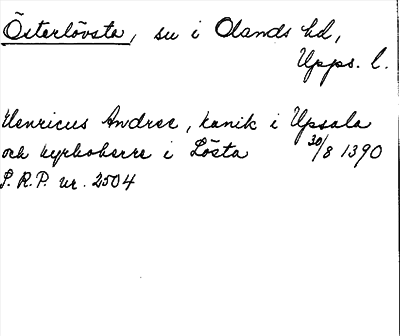 Österlövsta, su i Olands hd,
Upps. l.
Henricus Andree, kanik i Upsala
och kyrkoherre i Lösta 30/8 1390
S.R.P. nr. 2504